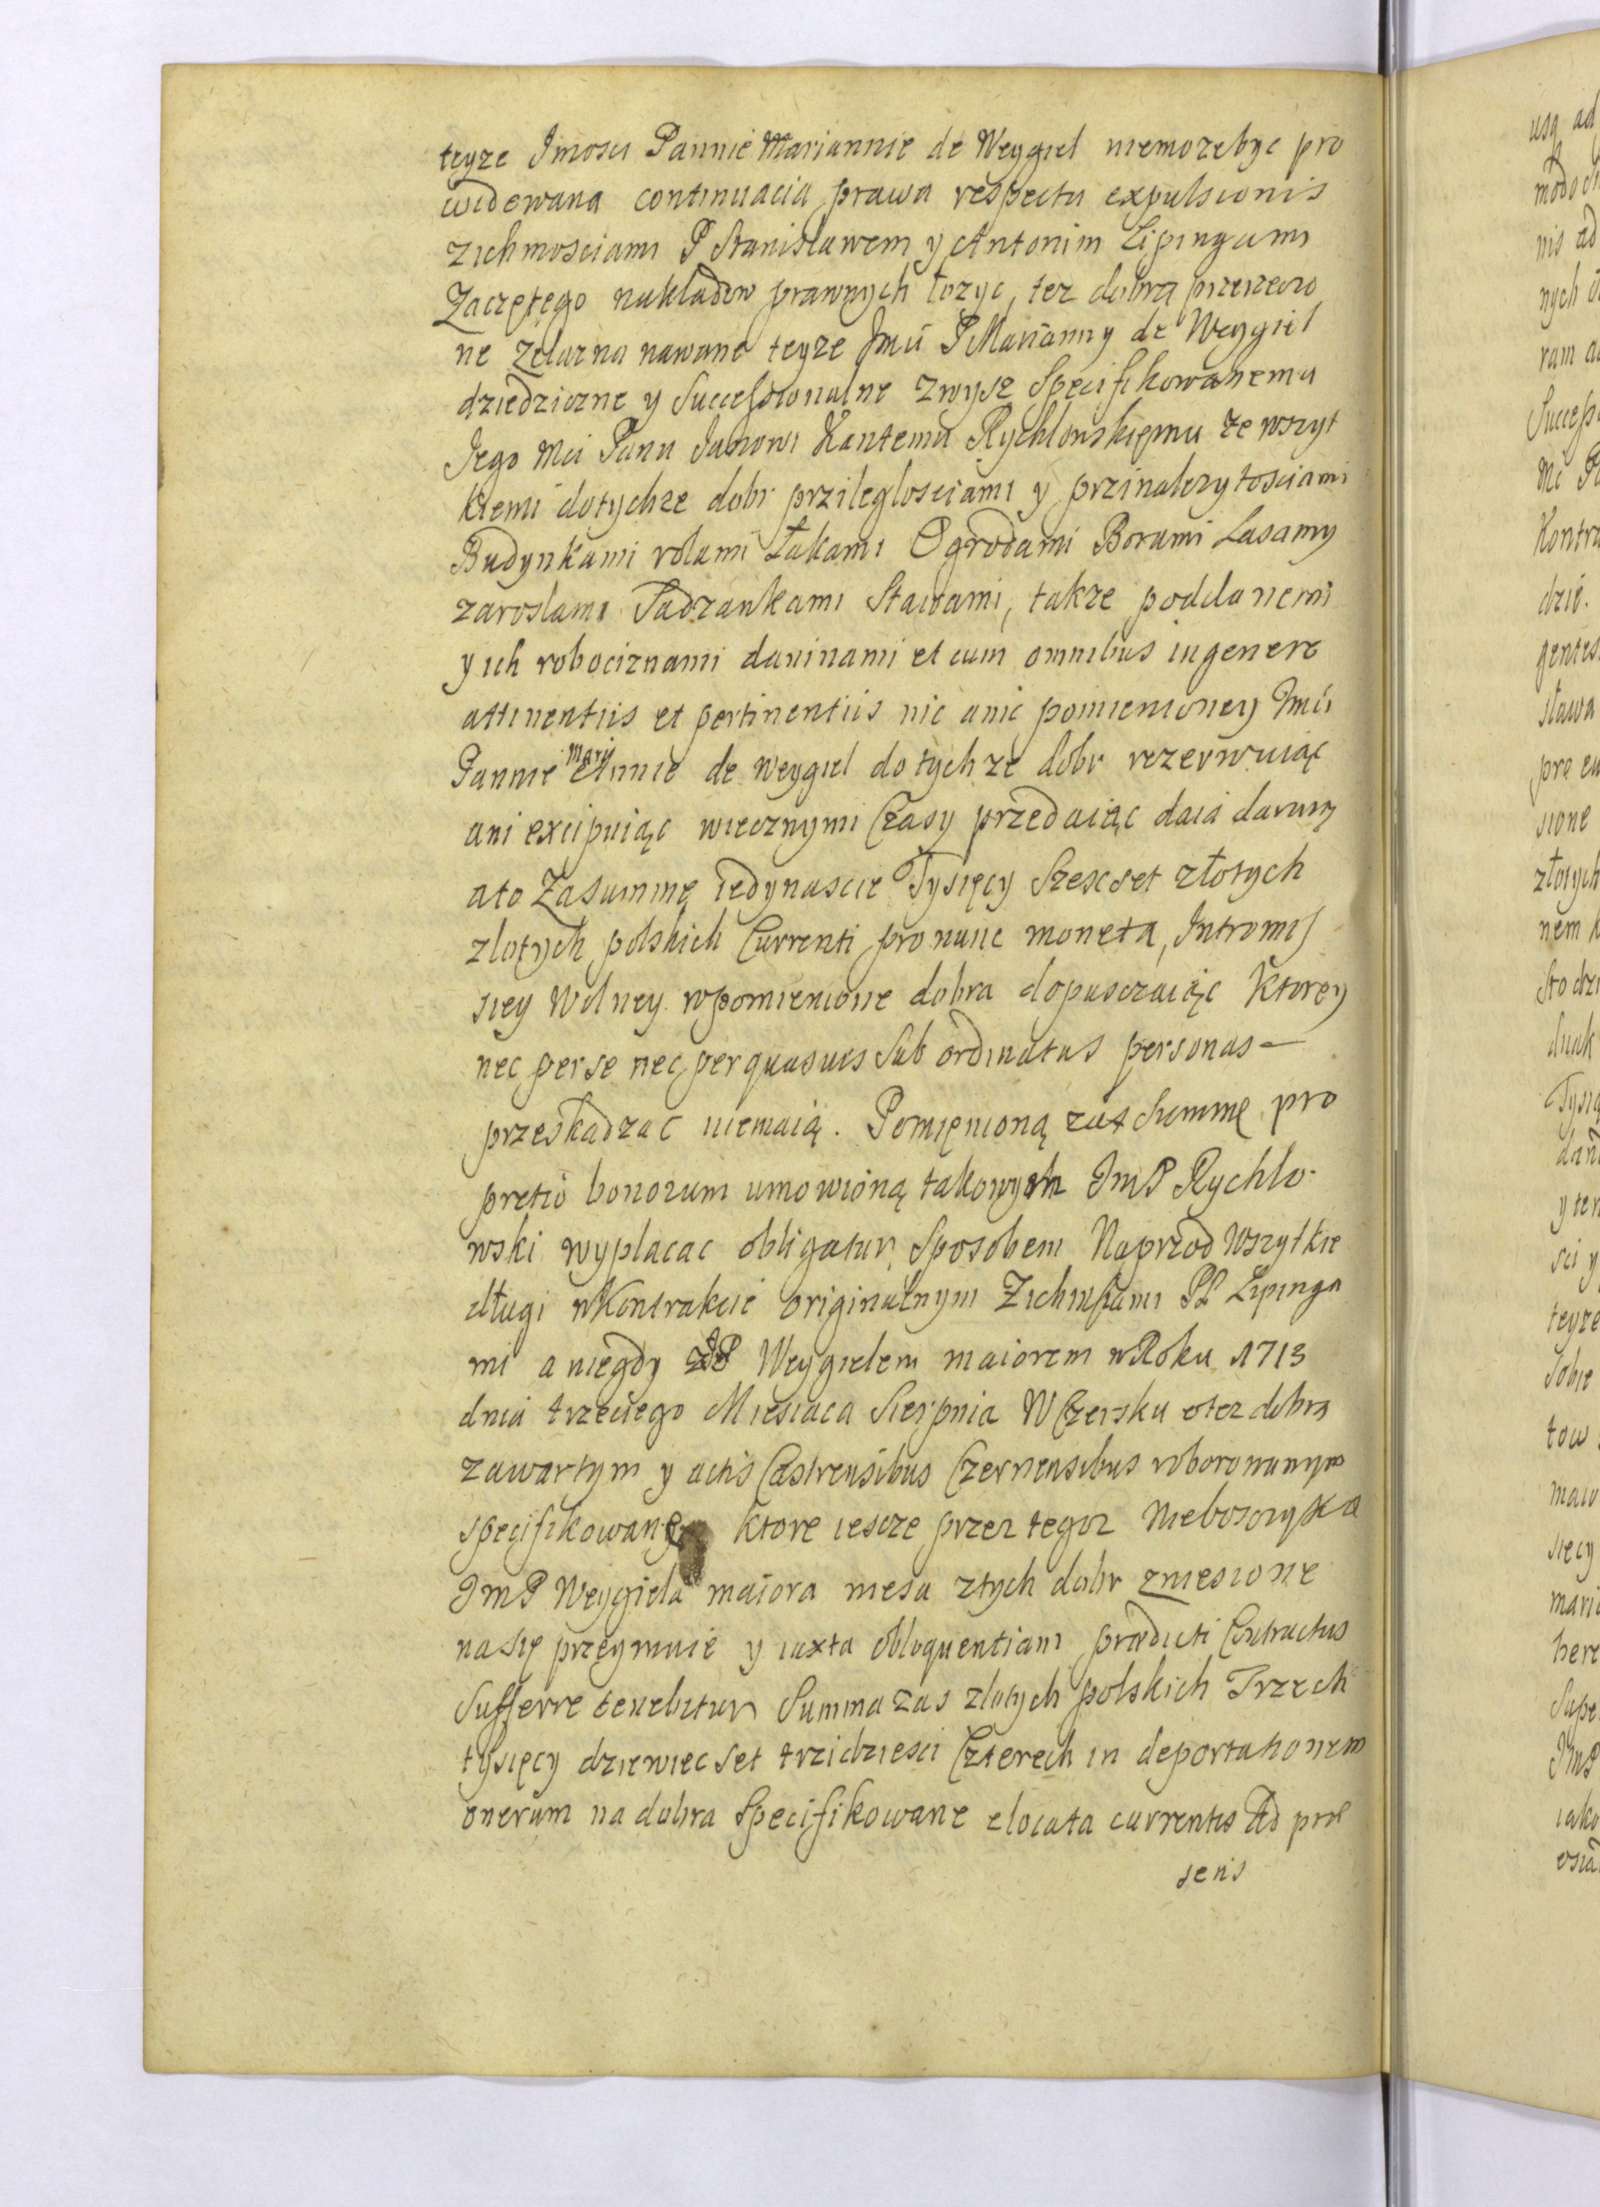 teyze Jmosci Pannie Mariannie de Weygiel niemozebyc pro
widowana continuacia prawa respectu expulsionis
zichmosciami P Stanisławem y Antonim Lipingami
Zaczętego nakladow prawnych łozyc, tez dobra przerzeczo
ne Zelazna nawane teyze Jmci P Marianny de Weygiel
dziedziczne y Successionalne zwysz specifikowanemu
Jego Mci Panu Janowi Kantemu Rychlowskiemu ze wszyt
kiemi dotychze dobr przileglosciami y przinalezytosciami
Budynkami rolami Łakami Ogrodami Borami Lasamy
zaroslami Sadzankami Stawami, takze poddanemi
y ich robociznami daninami et cum omnibus in genere
attinentiis et pertinentiis nic anic pomienioney Jmci
Pannie Mari Annie de Weygiel do tych ze dobr rezerwuiąc
ani excipuiąc wiecznymi Czasy przedaiąc daią daruią
ato Zasummę iedynascie Tysięcy Szescset złotych
zlotych polskich Currenti pro nunc moneta, Intromis
siey Wolney wpomienione dobra dopusczaiąc Ktorey
nec per se nec per quasuis Sub ordinatas personas —
przeskadzac niemaią. Pomięnioną zas Summę pro
pretio bonorum umowioną takowym JmP Rychlo-
wski wyplacac obligatur Sposobem Naprzod wszytkie
długi wKontrakcie originalnym Zichmsciami PP Lipinga
mi a niegdy P Weygielem maiorem wRoku 1713
dnia trzeciego Miesiaca Sierpnia W Czersku otez dobra
zawartym y actis Castrensibus Czernensibus roborowanym
specifikowane ktore iescze przez tegoz Nieboszczyka
JmP Weygiela maiora niesa ztych dobr zniesione
na się przeymuie y iuxta obloquentiam prædicti Contractus
Sufferre tenebitur Summa zas zlotych polskich Trzech
tysięcy dziewiec set trzidziesci Czterech in deportationem
onerum na dobra Specifikowane elocata currentis Ad præ
sens